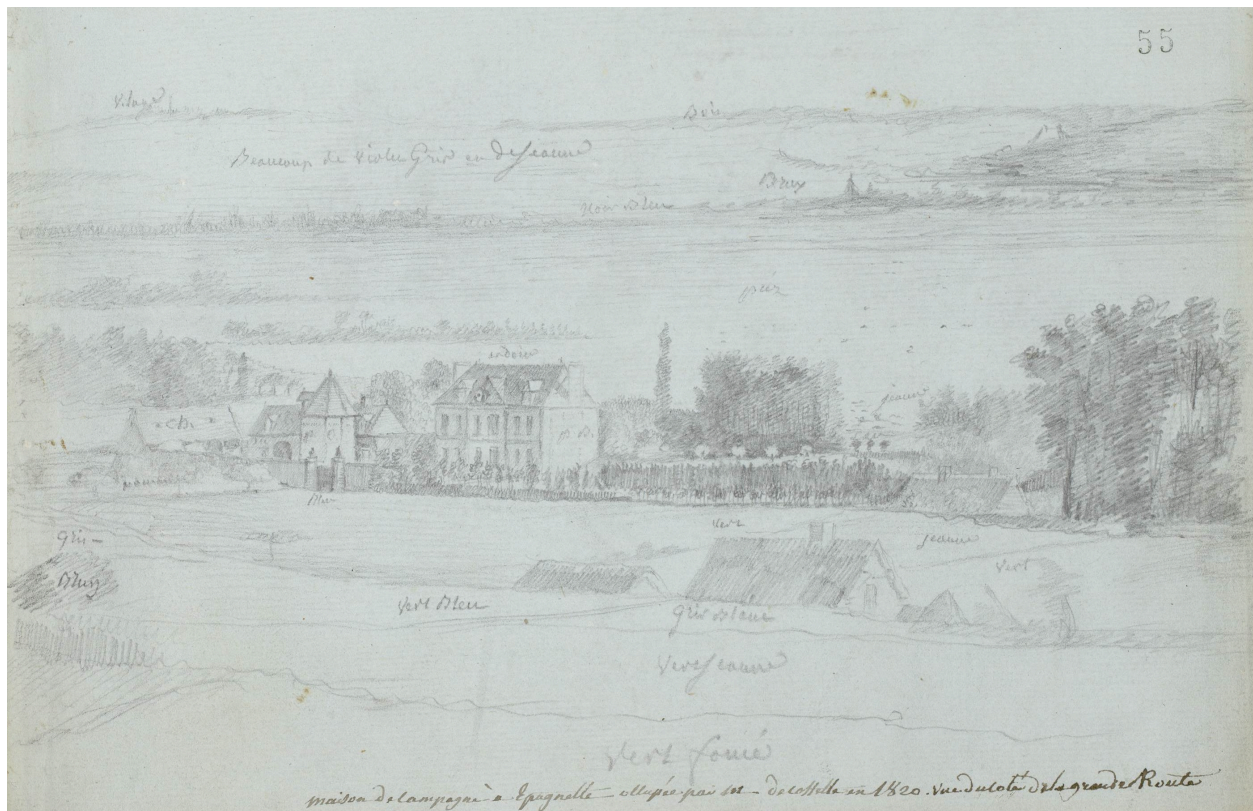 55
Vilage
Bois
Beaucoup de violet Gris en de Jeaune
Bleux
Noir Bleu
préz
ardoise
jeaune
B.
p. B.
Bleu
vert
Gris
jeaune
Bleux
vert
Vert Bleu
Gris Bleue
Vert Jeaune
Vert foncé
maison de Campagne à Epagnette occupée par de en 1820. vue du coté de la grande Route